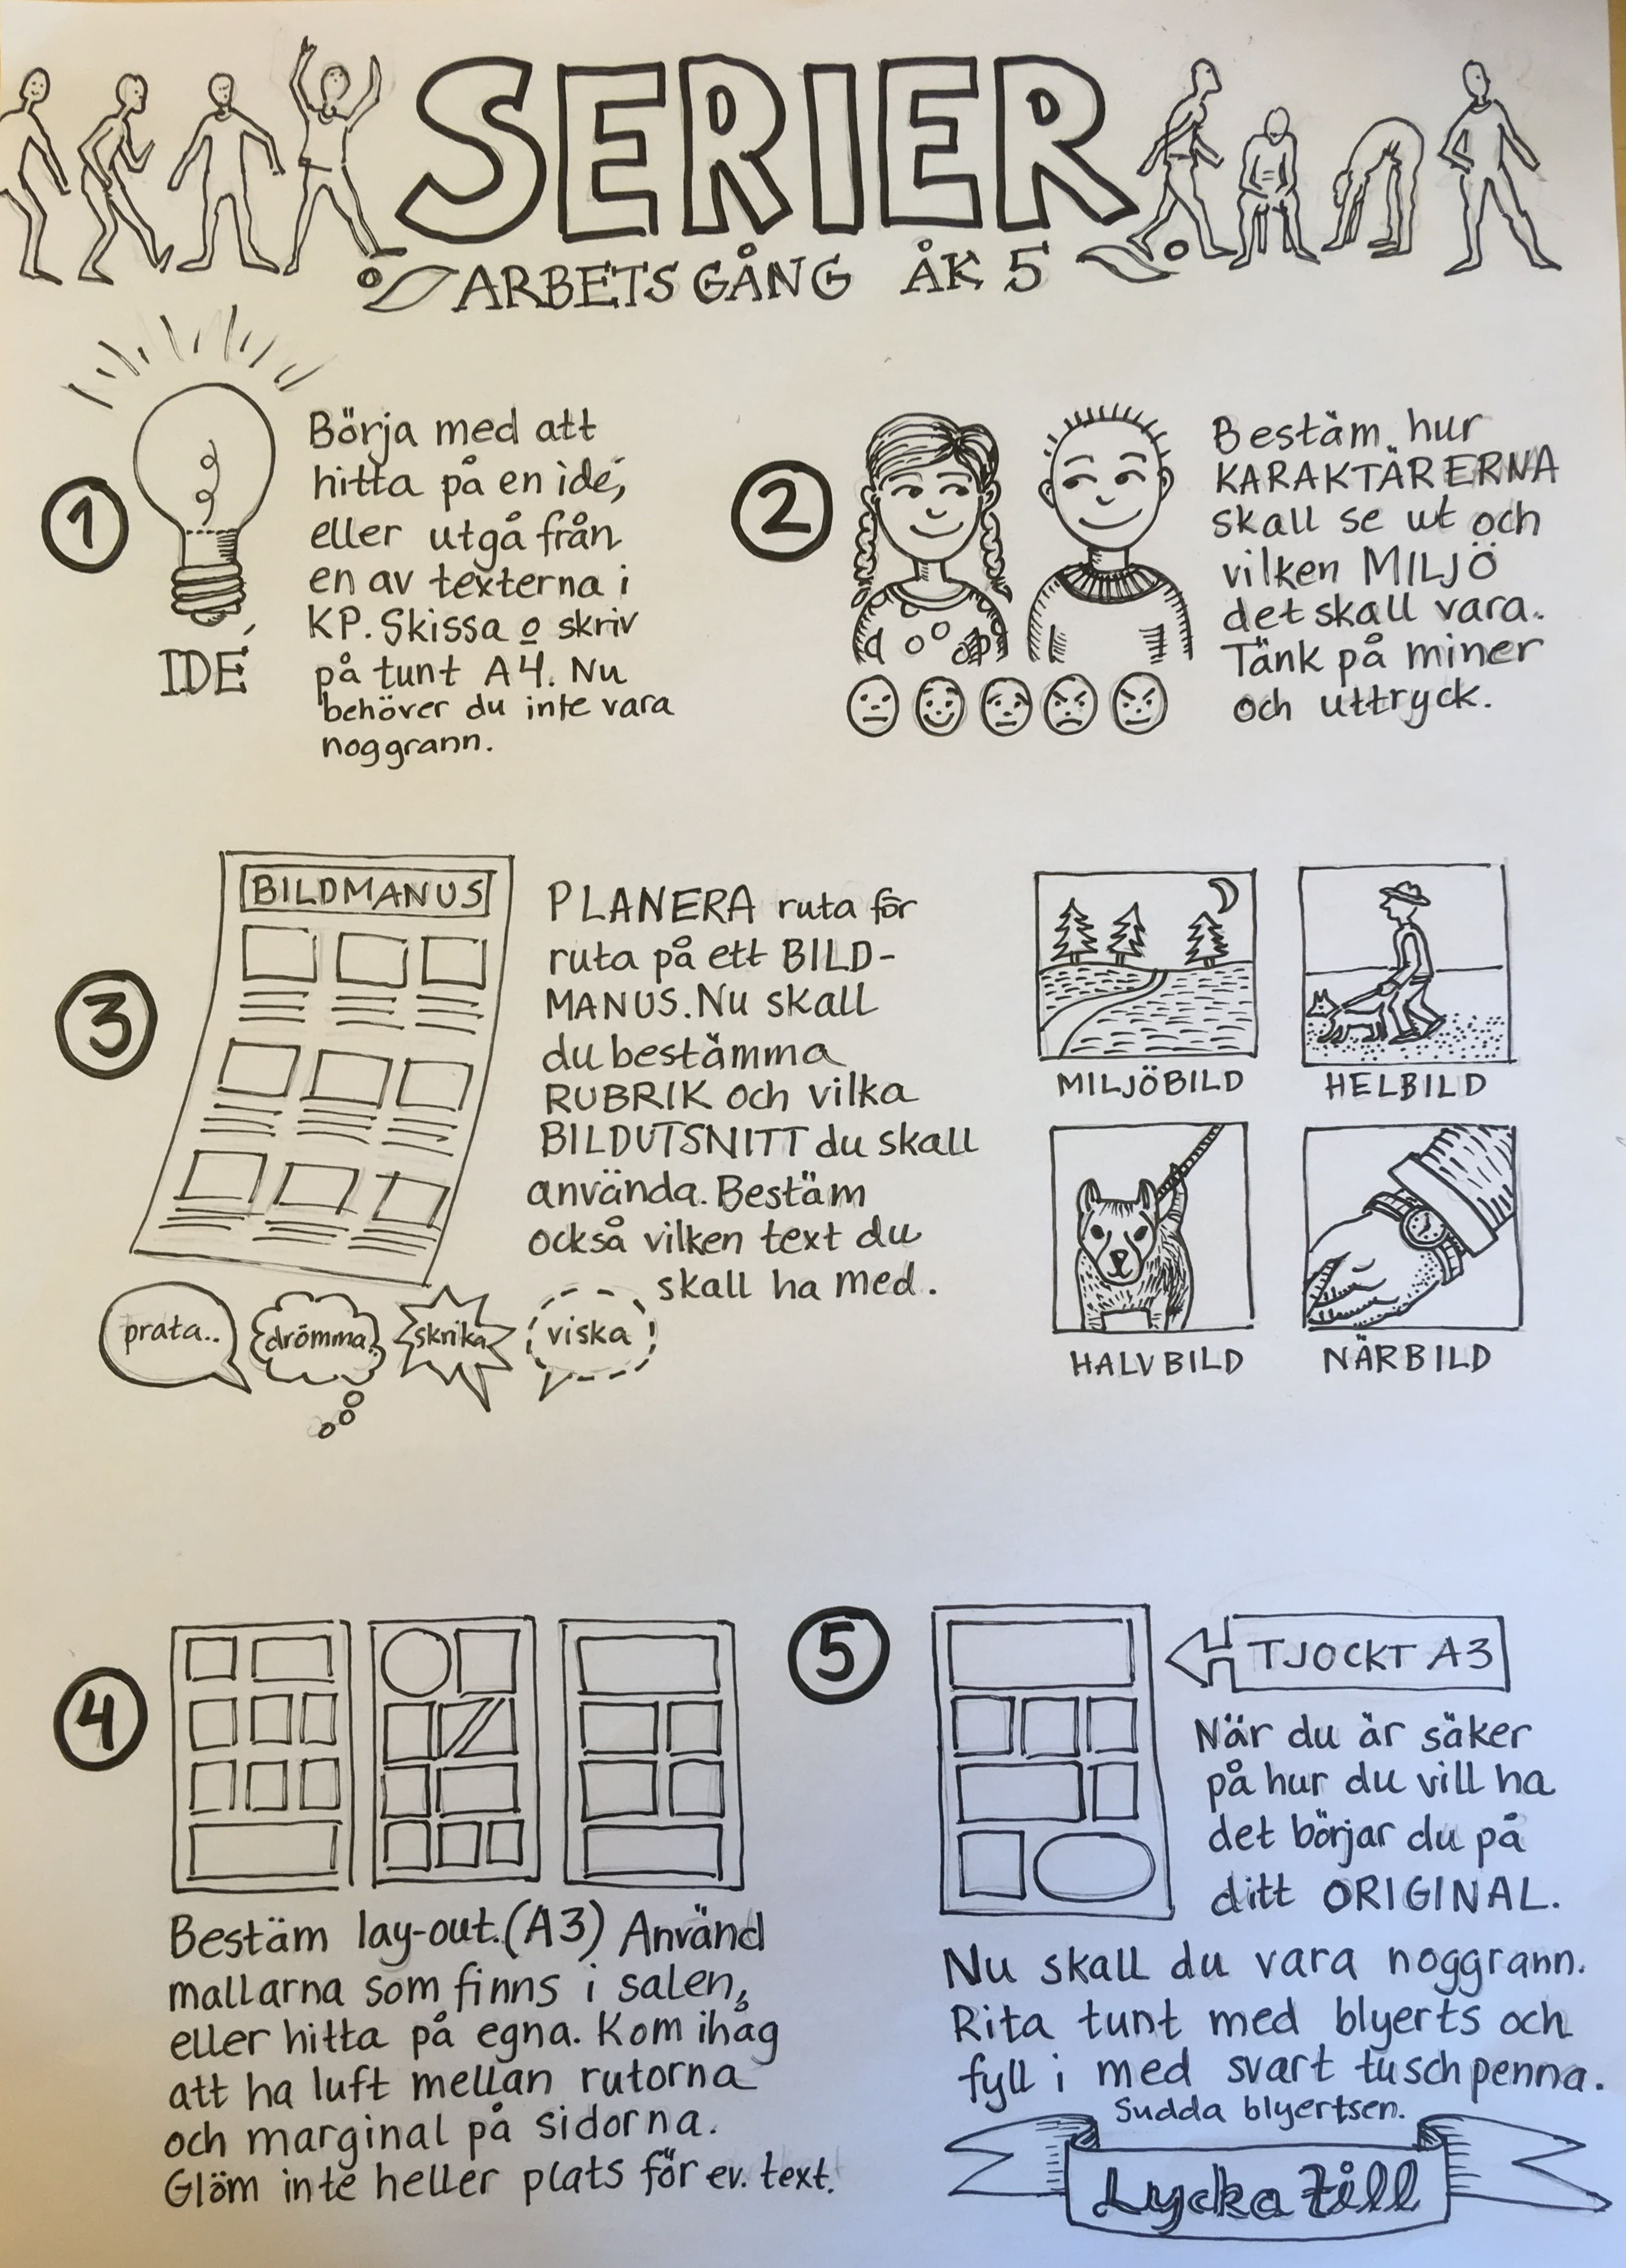 SERIER
ARBETSGÅNG ÅK 5
1
IDÉ
Börja med att
hitta på en idé,
eller utgå från
en av texterna i
KP. Skissa o skriv
på tunt A4. Nu
behöver du inte vara
noggrann.
2
Bestäm hur
KARAKTÄRERNA
skall se ut och
vilken MILJÖ
det skall vara.
Tänk på miner
och uttryck.
3
BILDMANUS
PLANERA ruta för
ruta på ett BILD-
MANUS. Nu skall
du bestämma
RUBRIK och vilka
BILDUTSNITT du skall
använda. Bestäm
också vilken text du
skall ha med.
prata..
drömma
skrika
viska
MILJÖBILD
HELBILD
HALVBILD
NÄRBILD
4
Bestäm lay-out. (A3) Använd
mallarna som finns i salen,
eller hitta på egna. Kom ihåg
att ha luft mellan rutorna
och marginal på sidorna.
Glöm inte heller plats för ev. text.
5
TJOCKT A3
När du är säker
på hur du vill ha
det börjar du på
ditt ORIGINAL.
Nu skall du vara noggrann.
Rita tunt med blyerts och
fyll i med svart tuschpenna.
Sudda blyertsen.
Lycka till